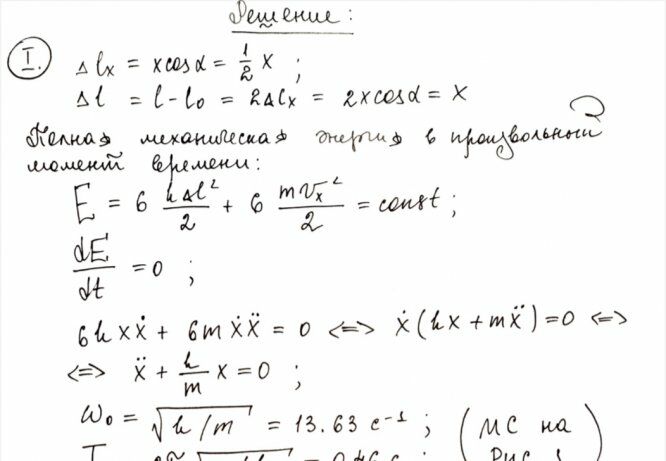 Решение:
I. Δlx = xcosα = 1/2 x ;
Δl = l-l₀ = 2Δlx = 2xcosα = x
Полная механическая энергия в произвольный
момент времени:
E = 6 kΔl²/2 + 6 mvx²/2 = const ;
dE/dt = 0 ;
6kxẋ + 6mẋẍ = 0 <=> ẋ(kx + mẍ) = 0 <=>
<=> ẍ + k/m x = 0 ;
ω₀ = √k/m = 13.63 c⁻¹ ; (МС на
Рис 1